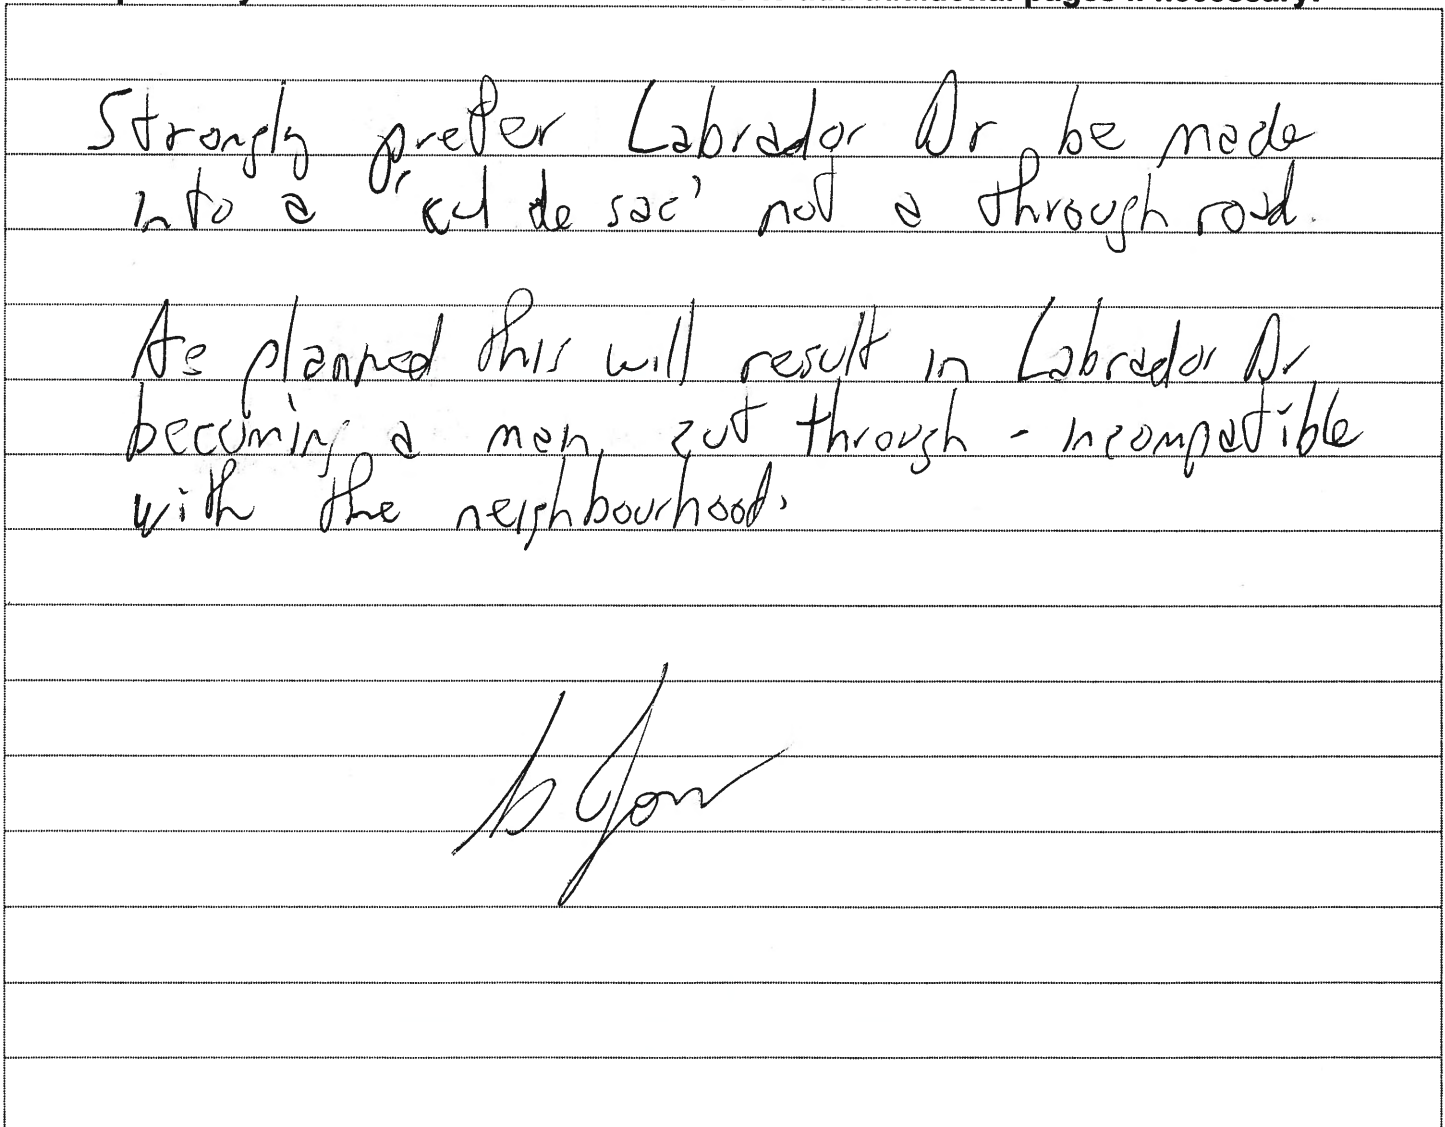 additional pages if necessary.
Strongly prefer Labrador Dr be made
into a 'cul de sac' not a through road.
As planned this will result in Labrador Dr
becoming a main cut through - incompatible
with the neighbourhood.